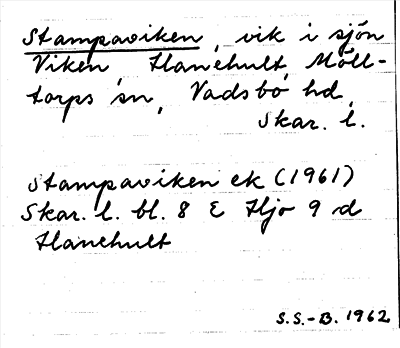 Stampaviken, vik i sjön
Viken, Hanehult, Möll-
torps sn, Vadsbo hd,
Skar. l.
Stampaviken ek (1961)
Skar. l. bl. 8 E Hjo 9 d
Hanehult
S.S.-B. 1962